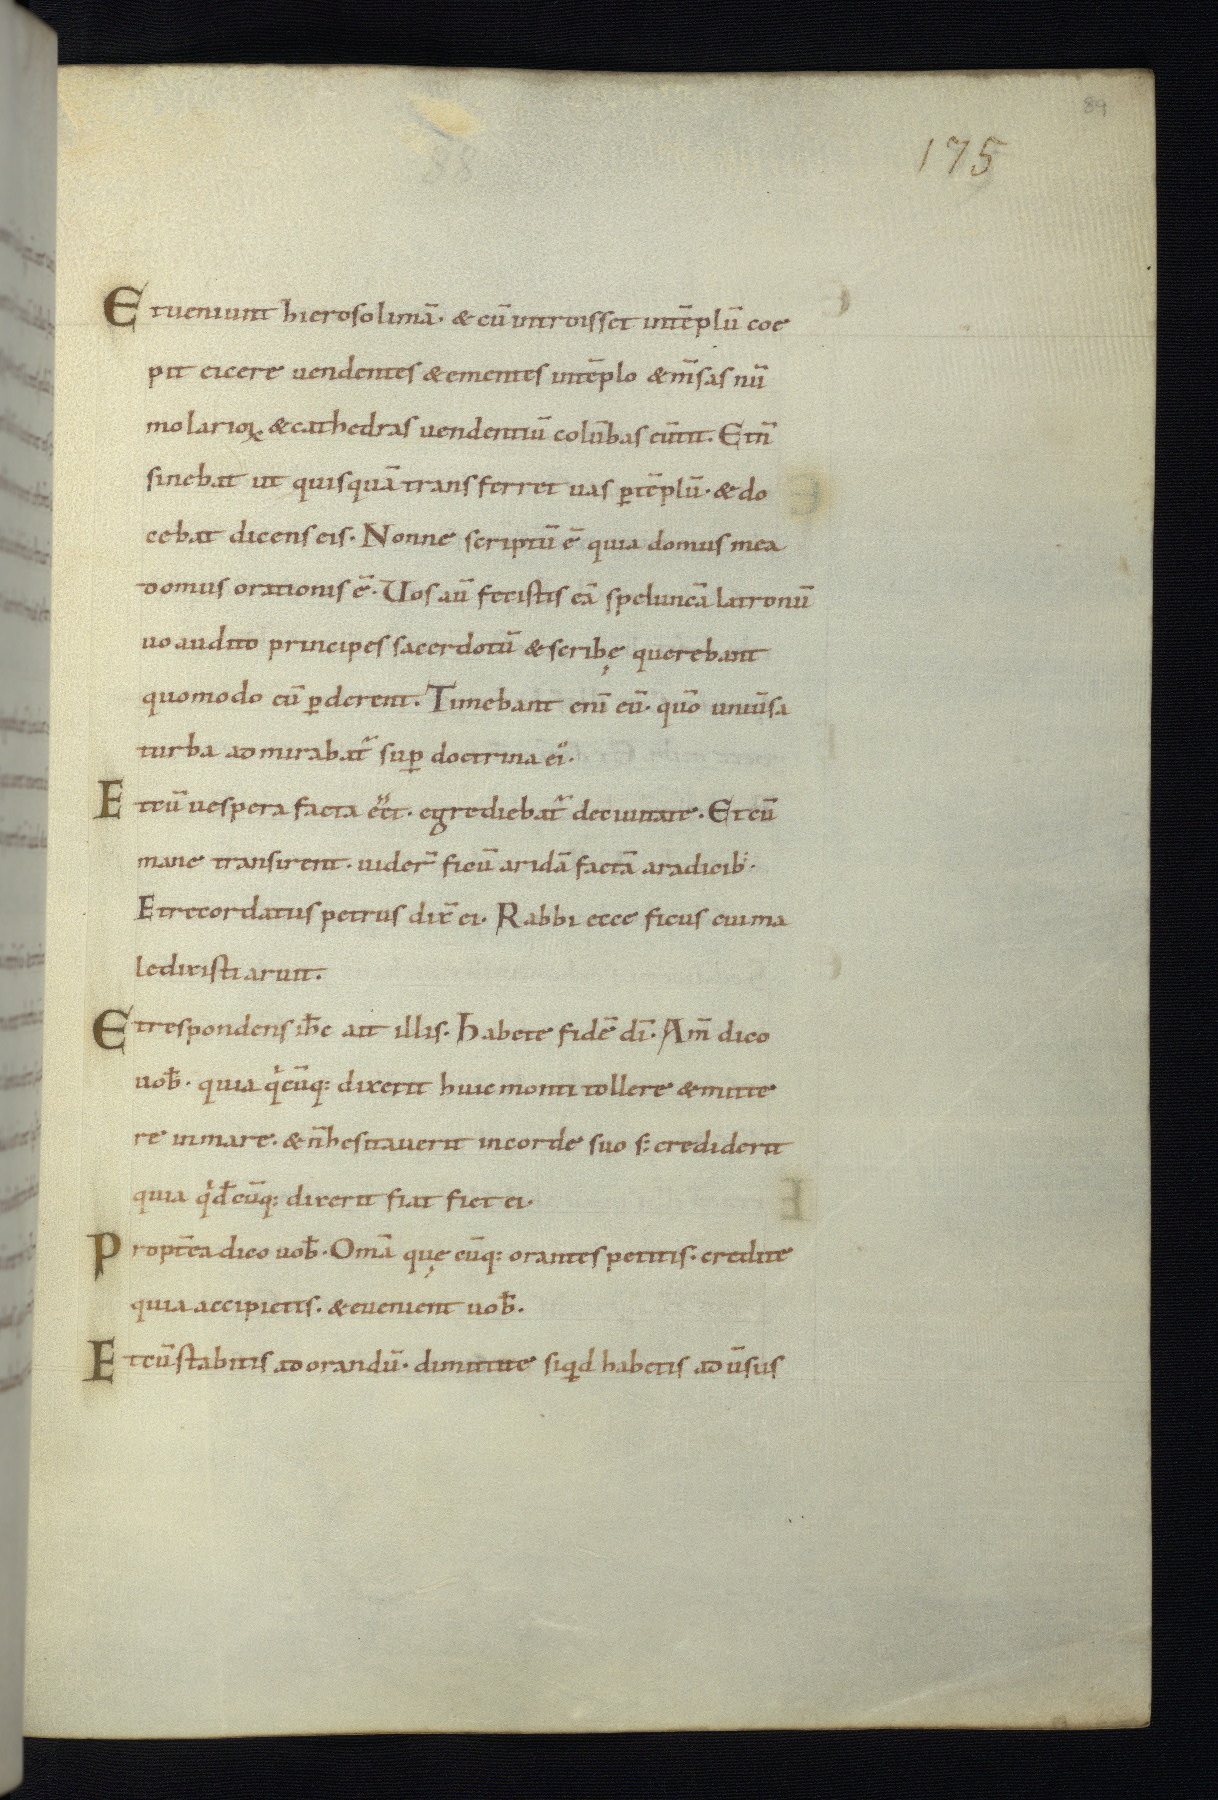 89
175
Et ueniunt hierosolimā· & cū introisset intēplū coe
pit eicere uendentes & ementes intēplo & m̄sas nū
molarioꝝ & cathedras uendentiū colūbas eūtit. Et n̄
sinebat ut quisquā transferret uas ꝑtēplū· & do
cebat dicens eis· Nonne scriptū ē quia domus mea
domus orationis ē· Uos aū fecistis eā speluncā latronū
uo audito principes sacerdotū & scribę querebant
quomodo eū ꝑderent. Timebant eni̅ eū· quō uniūsa
turba admirabat᷑ suꝑ doctrina ei᷒·
Et cū uespera facta eēt· egrediebat᷑ de ciuitate· Et cū
mane transirent· uider̄ ficū aridā factā aradicib᷒·
Et recordatus petrus dix̄ ei· Rabbi ecce ficus cui ma
ledixisti aruit.
Et respondens ih̄c ait illis· habete fidē dī· Am̄ dico
uob̄· quia q̇cūq; dixerit huic monti tollere & mitte
re in mare· & n̄ hesitauerit in corde suo s; crediderit
quia q̇d̄cūq; dixerit fiat fiet ei·
Propt̄ea dico uob̄· Om̄a quę cūq; orantes petitis· credite
quia accipietis· & euenient uob̄.
Et cū stabitis ad orandū· dimittite siqid habetis adūsus